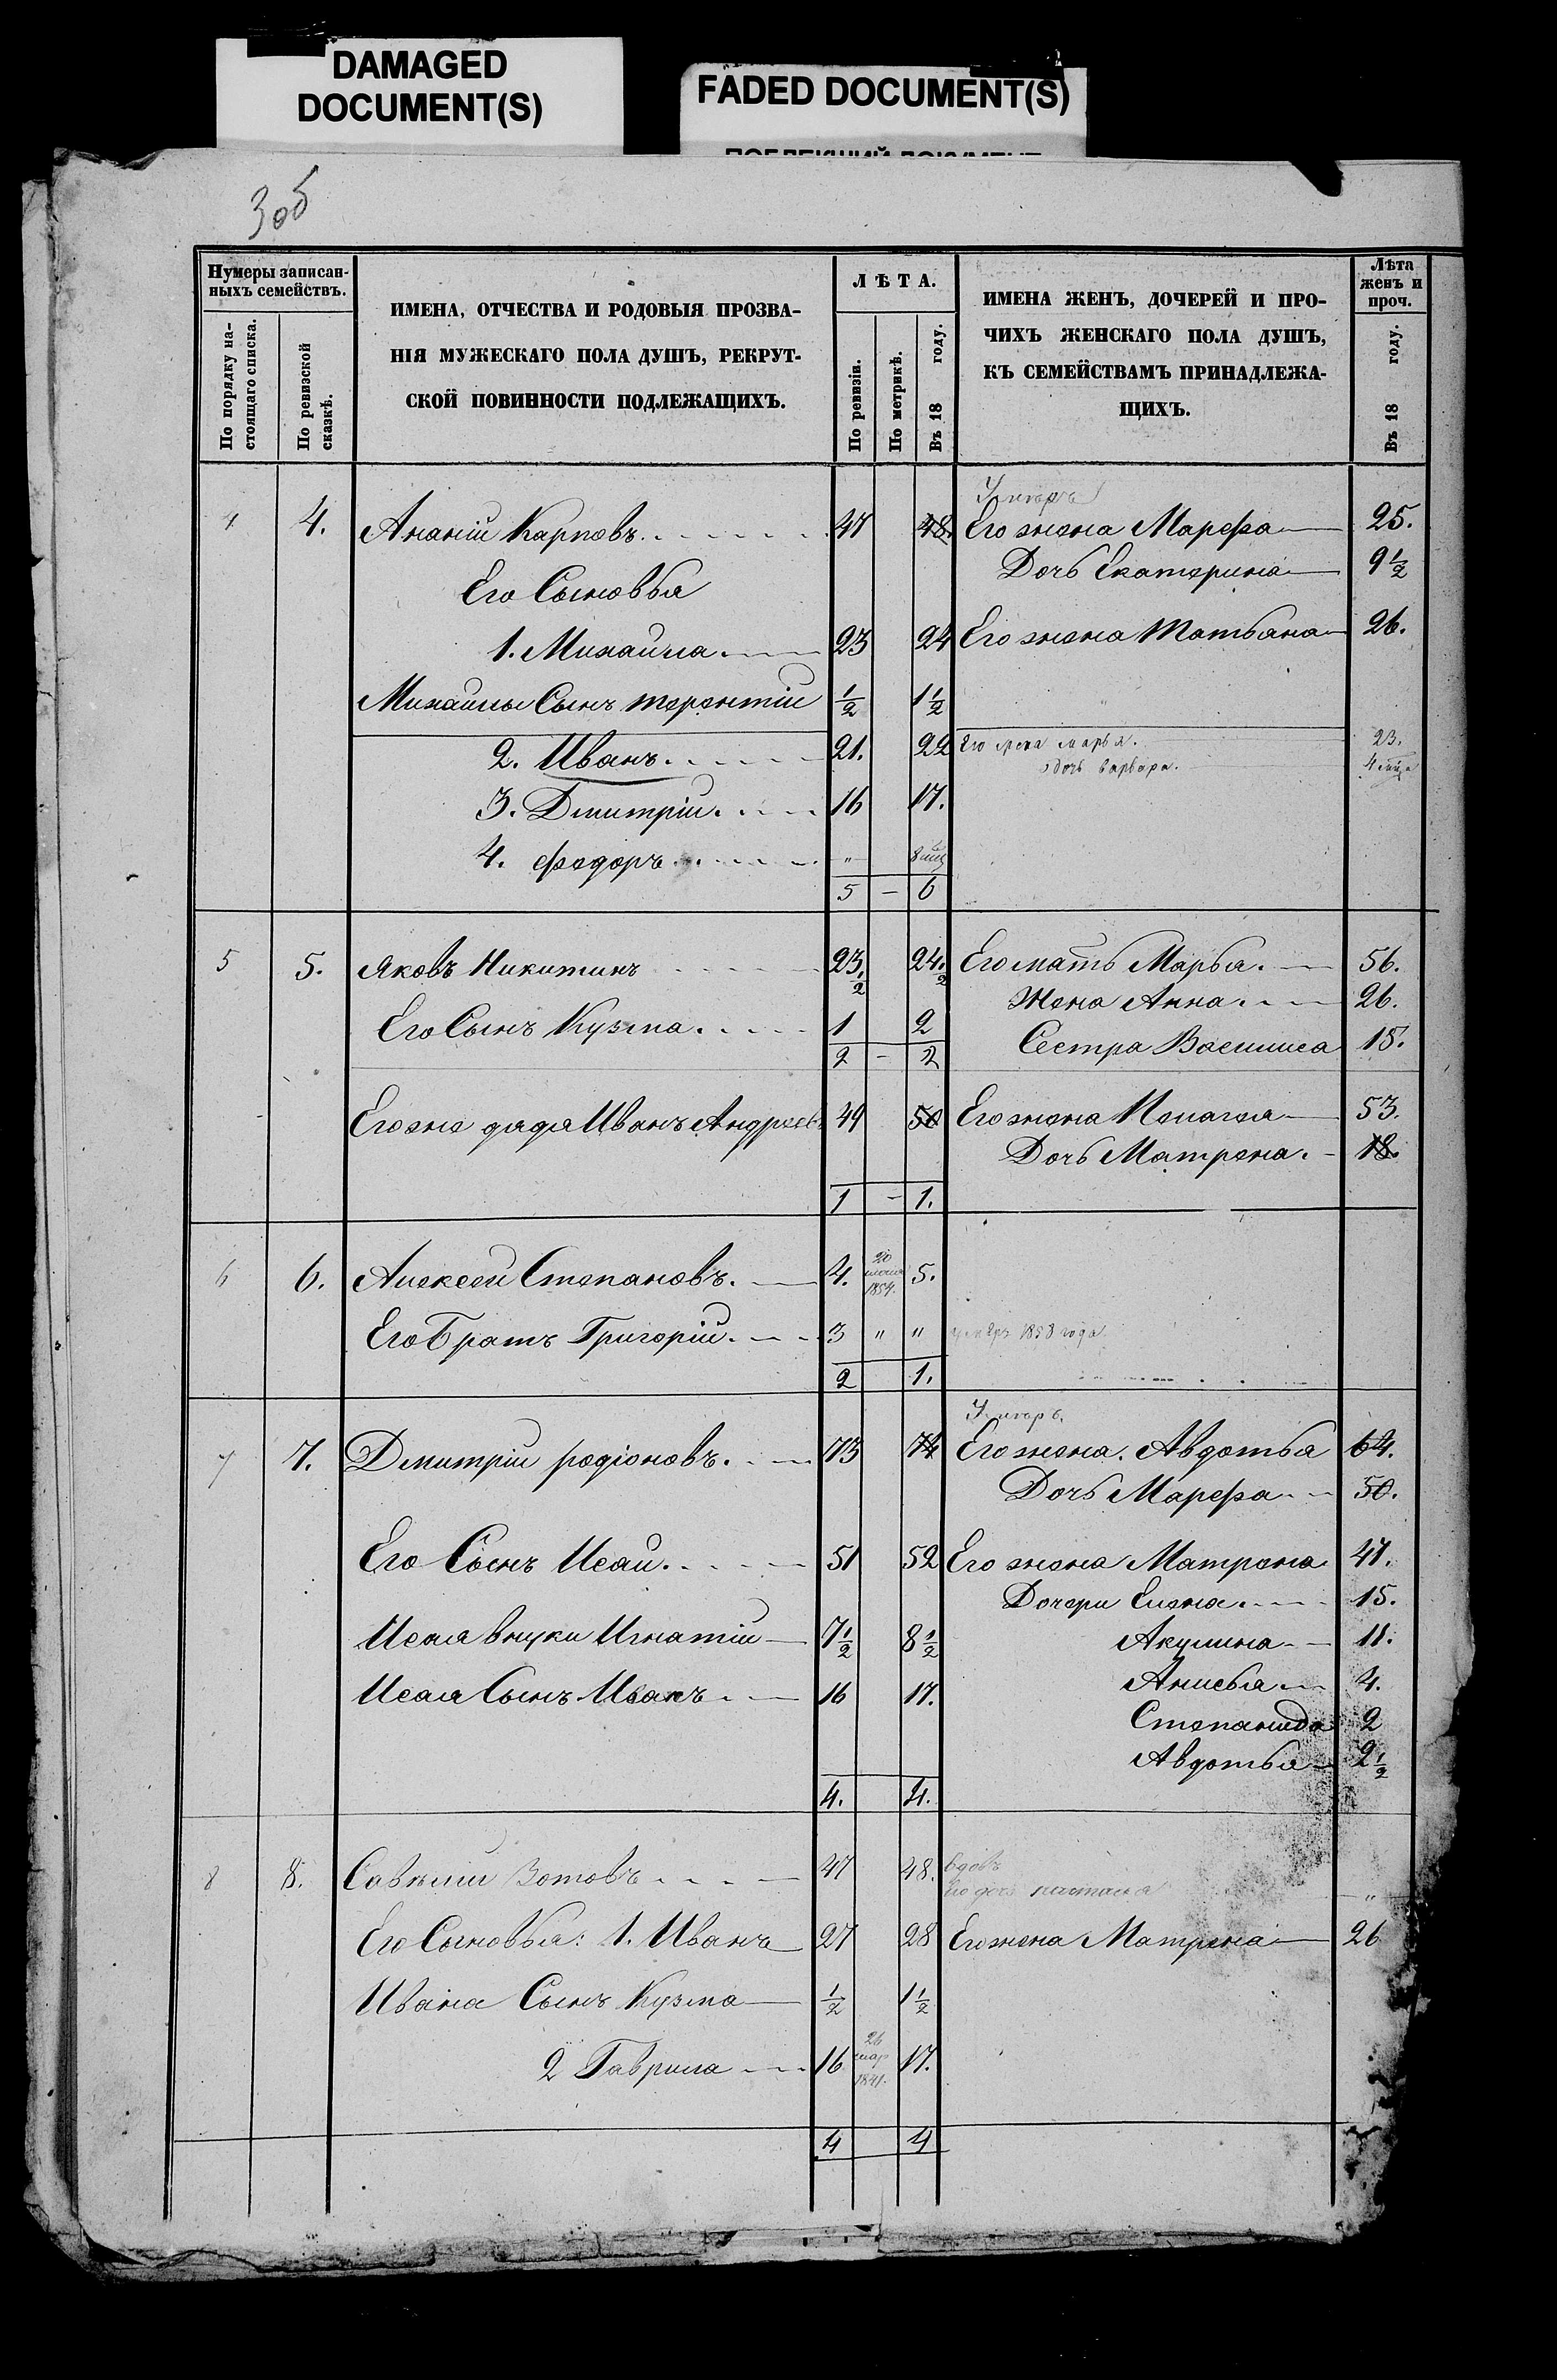 DAMAGED
DOCUMENT(S)
FADED DOCUMENT(S)
3об
Нумеры записан-
ныхъ семействъ.
По порядку на-
стоящаго списка.
По ревизской
сказкѣ.
ИМЕНА, ОТЧЕСТВА И РОДОВЫЯ ПРОЗВА-
НІЯ МУЖЕСКАГО ПОЛА ДУШЪ, РЕКРУТ-
СКОЙ ПОВИННОСТИ ПОДЛЕЖАЩИХЪ.
ЛѢТА.
По ревизіи.
По метрикѣ.
Въ 18 году.
ИМЕНА ЖЕНЪ, ДОЧЕРЕЙ И ПРО-
ЧИХЪ ЖЕНСКАГО ПОЛА ДУШЪ,
КЪ СЕМЕЙСТВАМЪ ПРИНАДЛЕЖА-
ЩИХЪ.
Лѣта
женъ и
проч.
Въ 18 году.
4 4. Ананій Карповъ 47 48. Его жена Марфа 25.
Дочь Екатерина 9 1/2
Его Сыновья
1. Михаила 23 24 Его жена Татьяна 26.
Михаилы Сынъ терентій 1/2 1 1/2
2. Иванъ 21. 22 Его жена марья. 23.
дочь варвара. 4
3. Дмитрій 16 17.
4. федоръ " 8
5 - 6
5 5. Яковъ Никитинъ 23 1/2 24 1/2 Его мать Марья. 56.
Жена Анна 26.
Его Сынъ Кузма 1 2
Сестра Василиса 18.
2 - 2
Его же дядя Иванъ Андреевъ 49 50 Его жена Пелагея 53.
Дочь Матрена. 18.
1 - 1.
6 6. Алексей Степановъ. 4. 20 1854. 5.
Его Братъ Григорій 3 " " умеръ 1858 года
2 1.
Умеръ.
7 7. Дмитрій родіоновъ. 73 74 Его жена. Авдотья 64.
Дочь Марфа 50.
Его Сынъ Исай. 51 52 Его жена Матрена 47.
Дочери Елена 15.
Исая внуки Игнатій 7 1/2 8 1/2 Акулина 11.
Исая Сынъ Исакъ 16 17. Анисья 4.
Степанида 2
Авдотья 2 1/2
4. 4.
8 8. Савелій Зотовъ 47 48. вдовъ
Его дочь "
Его Сыновья: 1. Иванъ 27 28 Его жена Матрена 26
Ивана Сынъ Кузма 1/2 1 1/2
2 Гаврила 16 26 мар 1841. 17.
4 4